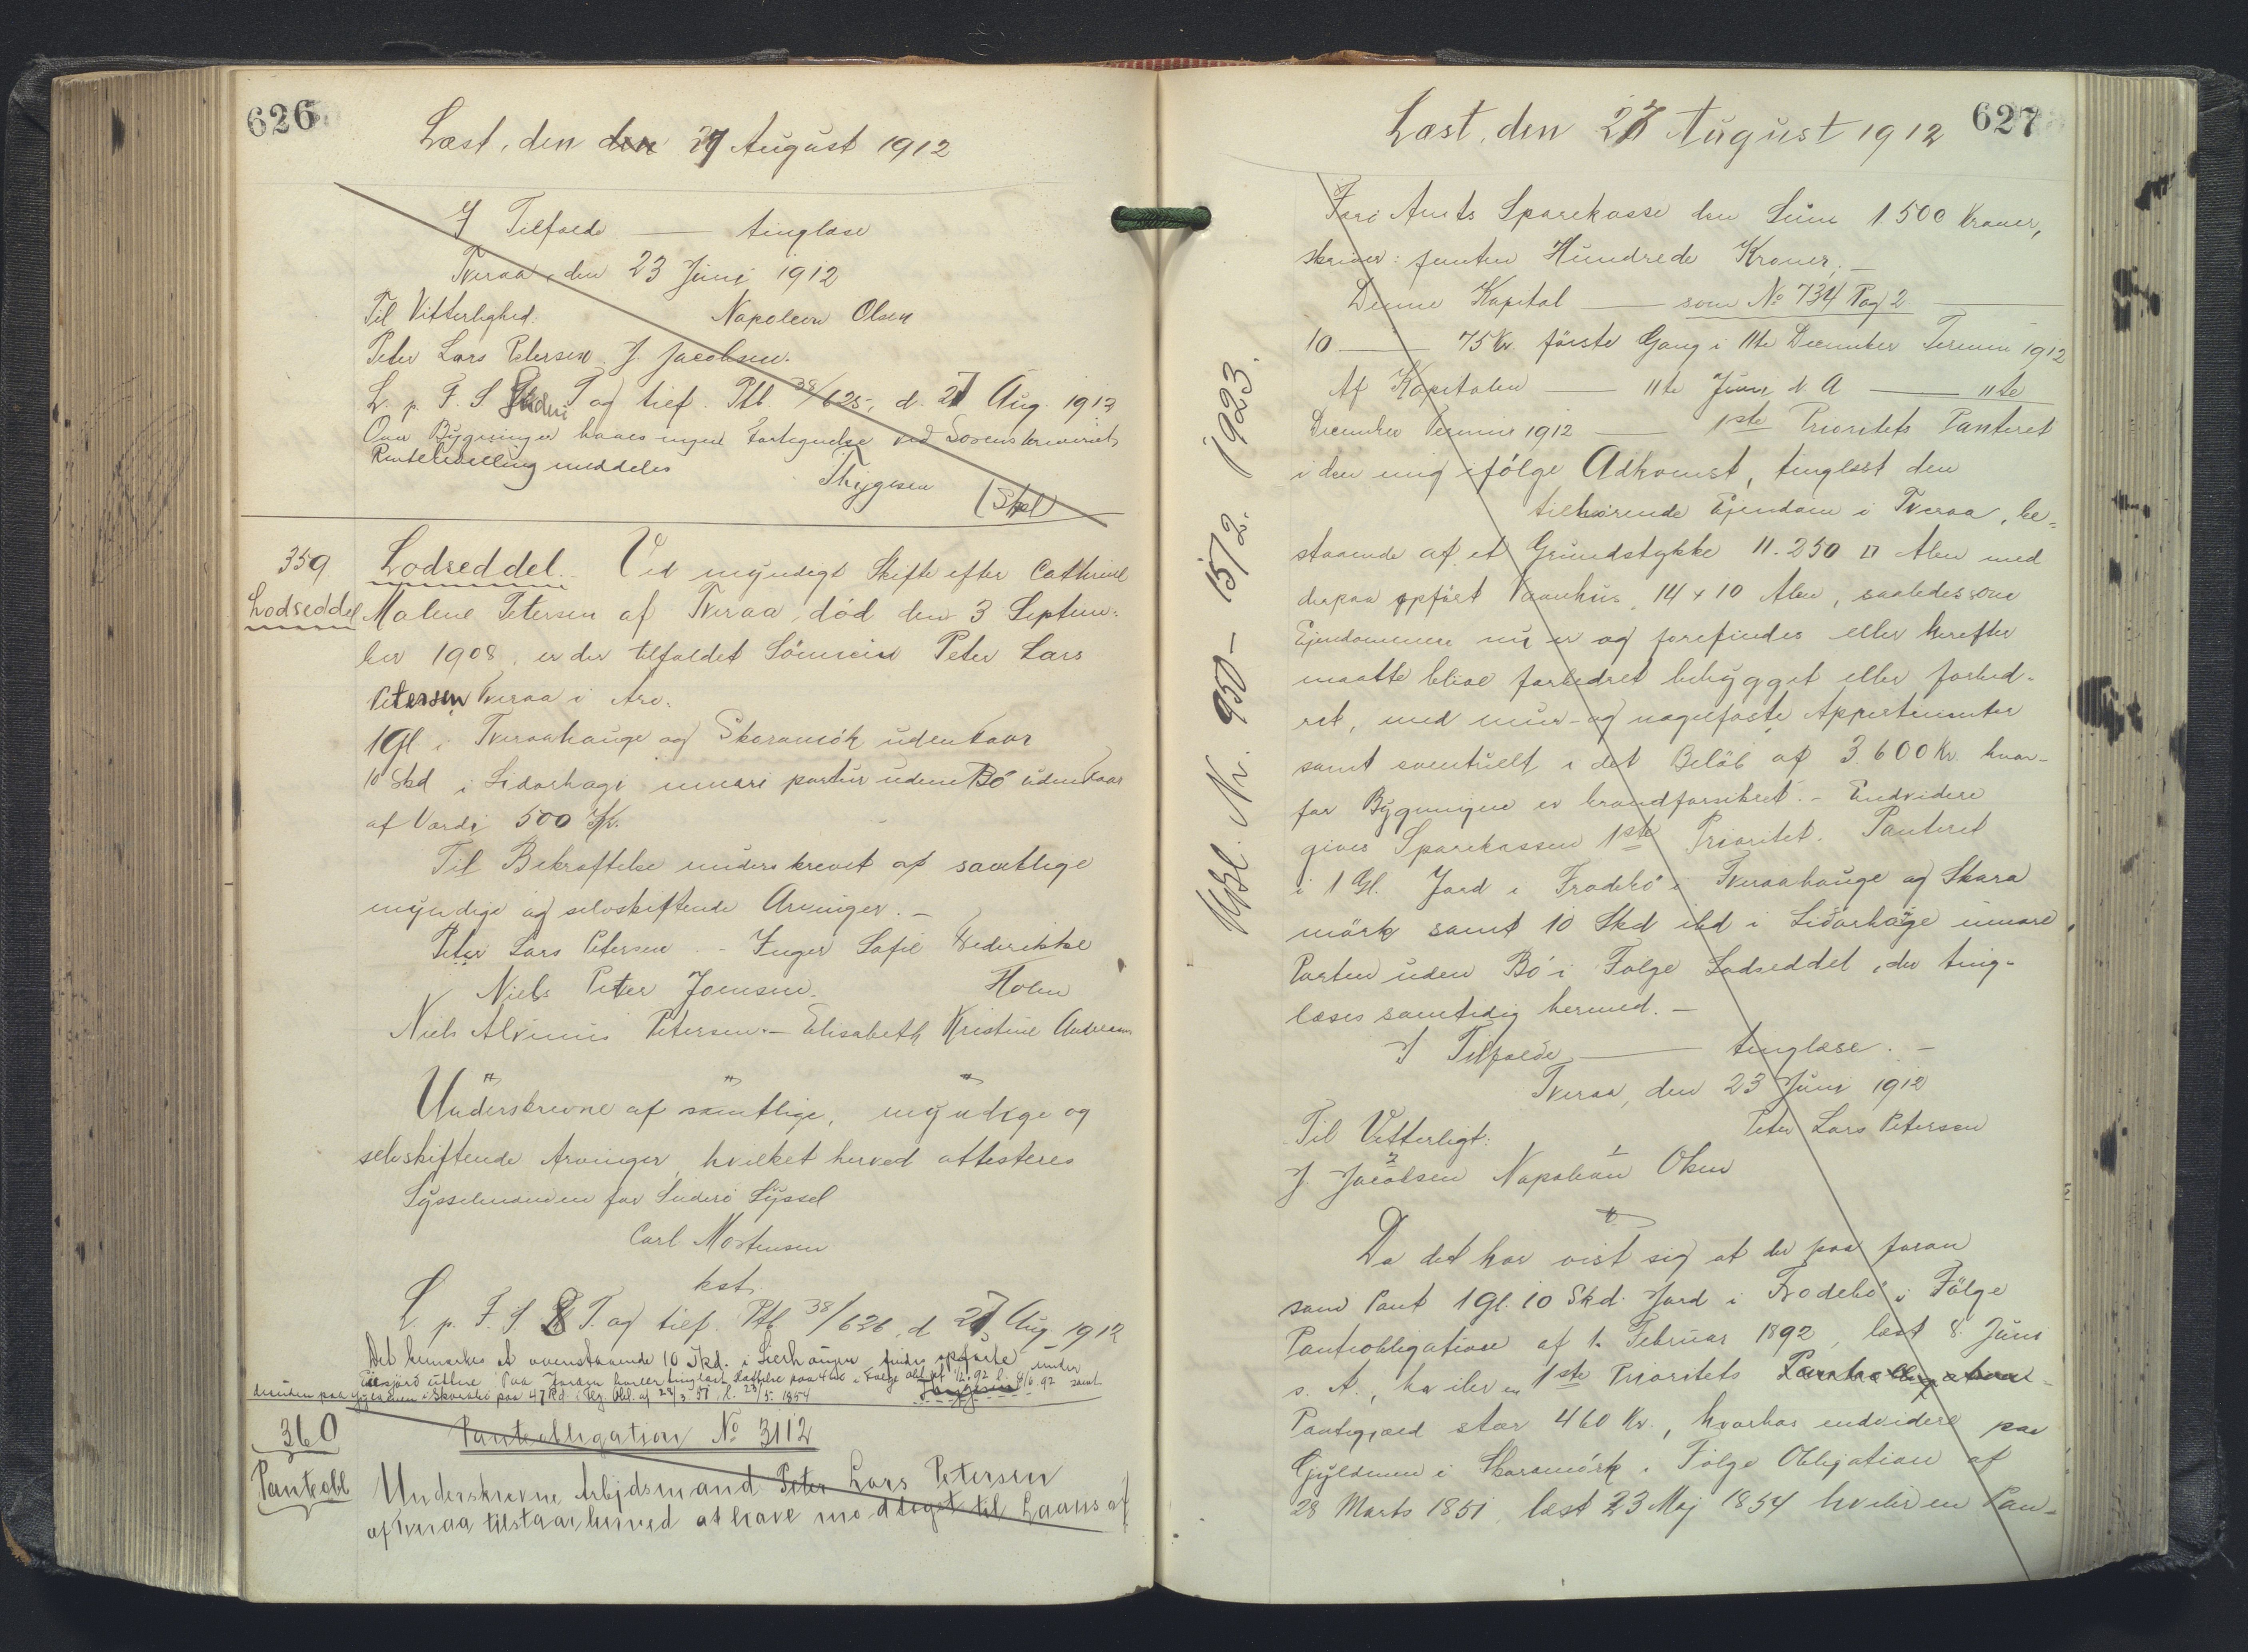 626
Læst, den den 27 August 1912
I Tilfælde — tinglæse
Tveraa, den 23 Juni 1912
Til Vitterlighed: Napoleon Olsen
Peter Lars Petersen. J. Jacobsen.
L. p. F. S Suderø T og tilf. Ptb. 38/625, d. 27 Aug. 1912
Over Bygninger haves ingen Fortegnelse ved Sorenskriveriet
Rentebevilling meddeles
Thygesen
(Skpl)
359
Lodseddel
Lodseddel. Ved myndigt Skifte efter Cathrine
Malene Petersen af Tveraa, død den 3 Septem-
ber 1908, er der tilfaldet Sønnen Peter Lars
Petersen Tveraa i Arv.
1 Gl. i Tveraahauge og Skaramørk uden Kaar
10 Skd i Lidarhagi innari partur uden Bø uden Kaar
af Værdi 500 Kr.
Til Bekræftelse underskrevet af samtlige
myndige og selvskiftende Arvinger. —
Peter Lars Petersen. - Inger Sofie Frederikke
Niels Peter Joensen. Holm
Niels Alvinus Petersen. — Elisabeth Kristine Andreasen
Underskrevne af samtlige, myndige og
selvskiftende Arvinger, hvilket herved attesteres
Sysselmanden for Suderø Syssel
Carl Mortensen
kst.
L. p. F. S S T. og tilf. Ptb. 38/626, d 27 Aug 1912
Det bemærkes at ovenstaaende 10 Skd. i findes opførte under
Paa Jorden hviler tinglæst Hæftelse paa 460 i Følge Obl. af 1/2 92 l. 8/6 92 samt
desuden paa Gyldenen i Skaramø paa 47 Rd. i Følg. Obl. af 28/3 51, l. 23/5 1854
360
Pantobl
Pantobligation No 3112
Underskrevne Arbejdsmand Peter Lars Petersen
af Tveraa tilstaar herved at have modtaget til Laans af
627
Læst, den 27 August 1912
Færø Amts Sparekasse den Sum 1500 Kroner,
skriver: femten Hundrede Kroner. —
Denne Kapital — som No 734 Pag 2 —
10 — 75 Kr. første Gang i 11te December Termin 1912
Af Kapitalen — 11te Juni d A — 11te
December Termin 1912 — 1ste Prioritets Panteret
i den mig ifølge Adkomst, tinglæst den
tilhørende Ejendom i Tveraa, be-
staaende af et Grundstykke 11.250 □ Alen med
derpaa opført Vaanhus 14 x 10 Alen, saaledes som
Ejendommene nu er og forefindes eller herefter
maatte blive forbedret bebygget eller forbed-
ret, med mur- og nagelfaste Appertinentier
samt eventuelt i det Beløb af 3.600 Kr. hvor-
for Bygningen er brandforsikret. — Endvidere
gives Sparekassen 1ste Prioritet. Panteret
i 1 Gl. Jord i Frodebø i Tveraahauge og Skara
mørk samt 10 Skd ibd i Lidarhage innare
Parten uden Bø i Følge Lodseddel, der ting-
læses samtidig hermed. —
I Tilfælde — tinglæse. —
Tveraa, den 23 Juni 1912
Til Vitterligt: Peter Lars Petersen
J. Jacobsen Napoleon Olsen
Da det har vist sig at der paa foran
som Pant 1 Gl. 10 Skd. Jord i Frodebø i Følge
Panteobligation af 1. Februar 1892, læst 8. Juni
s. A., hviler en 1ste Prioritets Panteobligation-
Pantegjæld stor 460 Kr., hvorhos endvidere paa
Gyldenen i Skaramørk i Følge Obligation af
28 Marts 1851, læst 23 Maj 1854 hviler en Pan-
Udsl. Nr. 950 - 15/2. 1923.